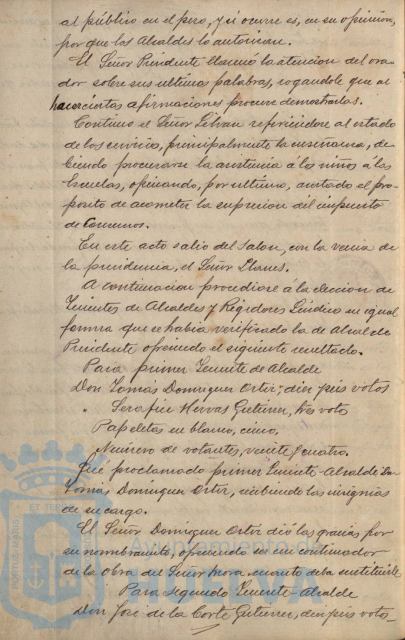 al público en el peso, y si ocurre es, en su opinión,
por que los Alcaldes lo autorizan.
El Señor Presidente llamó la atención del ora-
dor sobre sus ultimas palabras, rogandole que al
hacer ciertas afirmaciones procure demostrarlas.
Continuó el Señor refiriendose al estado
de los servicios, principalmente la enseñanza, de-
biendo procurarse la asistencia á los niños á las
Escuelas, opinando, por ultimo, acertado el pro-
posito de acometer la supresion del impuesto
de Consumos.
En este acto salió del Salon, con la venia de
la presidencia, el Señor Llanes.
A continuacion procediose á la eleccion de
Tenientes de Alcaldes y Regidores Sindicos en igual
forma que se habia verificado la de Alcalde
Presidente ofreciendo el siguiente resultado.
Para primer Teniente de Alcalde
Don Tomás Dominguez Ortiz; diez y seis votos
" Serafin Hervas Gutierrez, tres voto
Papeletas en blanco, cinco.
Número de votantes, veinte y cuatro.
Fué proclamado primer Teniente-Alcalde Don
Tomas Dominguez Ortiz, recibiendo las insignias
de su cargo.
El Señor Dominguez Ortiz dió las gracias por
su nombramiento, ofreciendo ser un continuador
de la obra del Señor Mora cuanto deba sustituirle
Para Segundo Teniente-Alcalde
Don José de la Corte Gutierrez, diez y seis votos